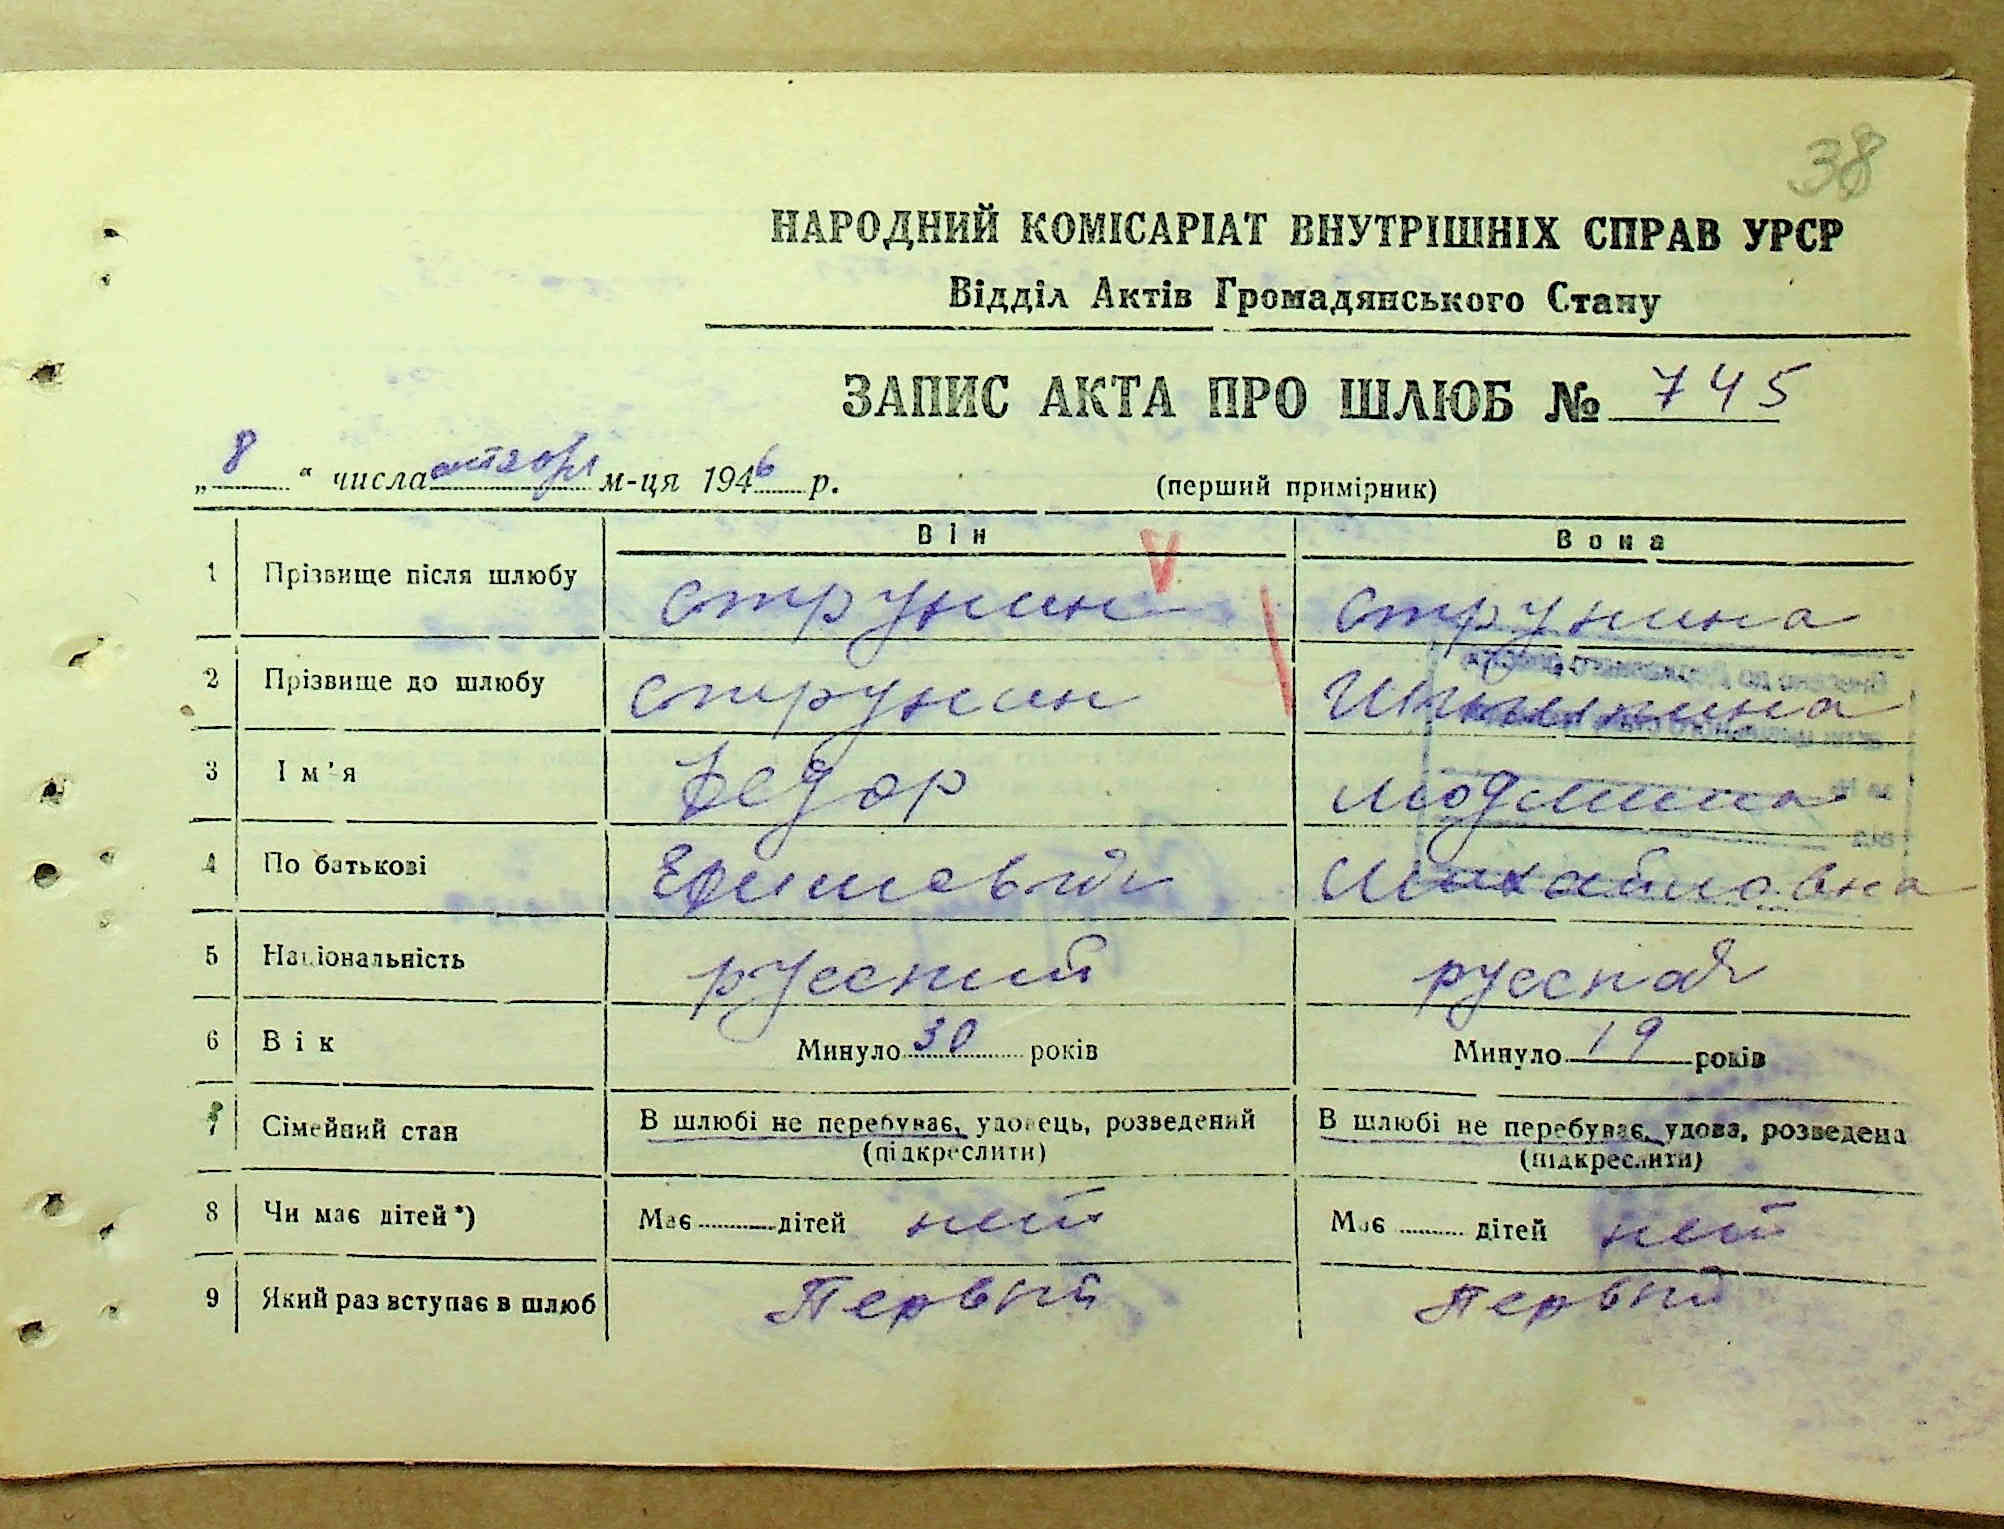 38
НАРОДНИЙ КОМІСАРІАТ ВНУТРІШНІХ СПРАВ УРСР
Відділ Актів Громадянського Стану
ЗАПИС АКТА ПРО ШЛЮБ № 745
„ 8 " числа октября м-ця 1946 р. (перший примірник)
Він Вона
1 Прізвище після шлюбу Струнин Струнина
2 Прізвище до шлюбу Струнин
3 Ім'я Федор Людмила
4 По батькові Ефимович Михайловна
5 Національність русский русская
6 Вік Минуло 30 років Минуло 19 років
7 Сімейний стан В шлюбі не перебуває, удовець, розведений (підкреслити) В шлюбі не перебуває, удова, розведена (підкреслити)
8 Чи має дітей*) Має ...... дітей нет Має ...... дітей нет
9 Який раз вступає в шлюб Первый Первый